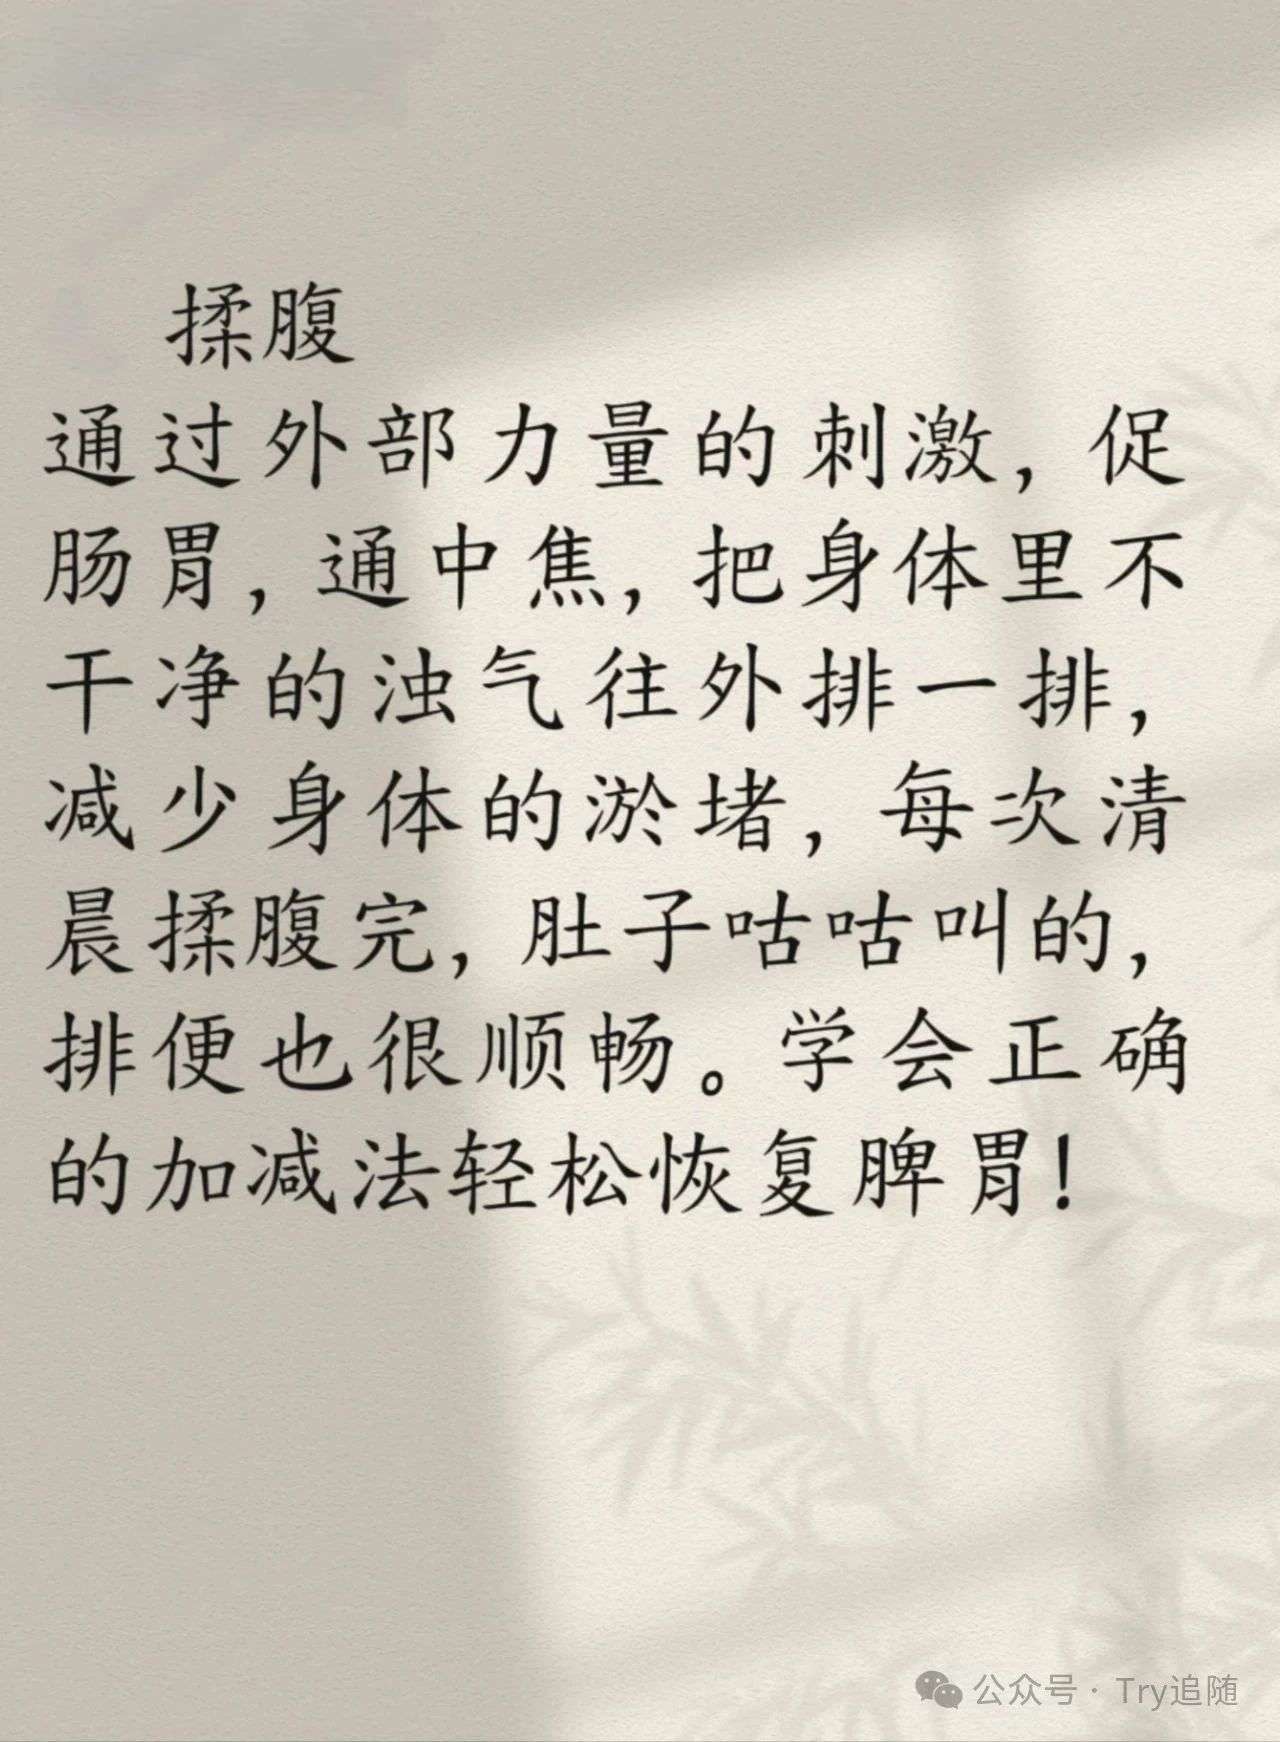 揉腹
通过外部力量的刺激，促
肠胃，通中焦，把身体里不
干净的浊气往外排一排，
减少身体的淤堵，每次清
晨揉腹完，肚子咕咕叫的，
排便也很顺畅。学会正确
的加减法轻松恢复脾胃！
公众号 · Try追随